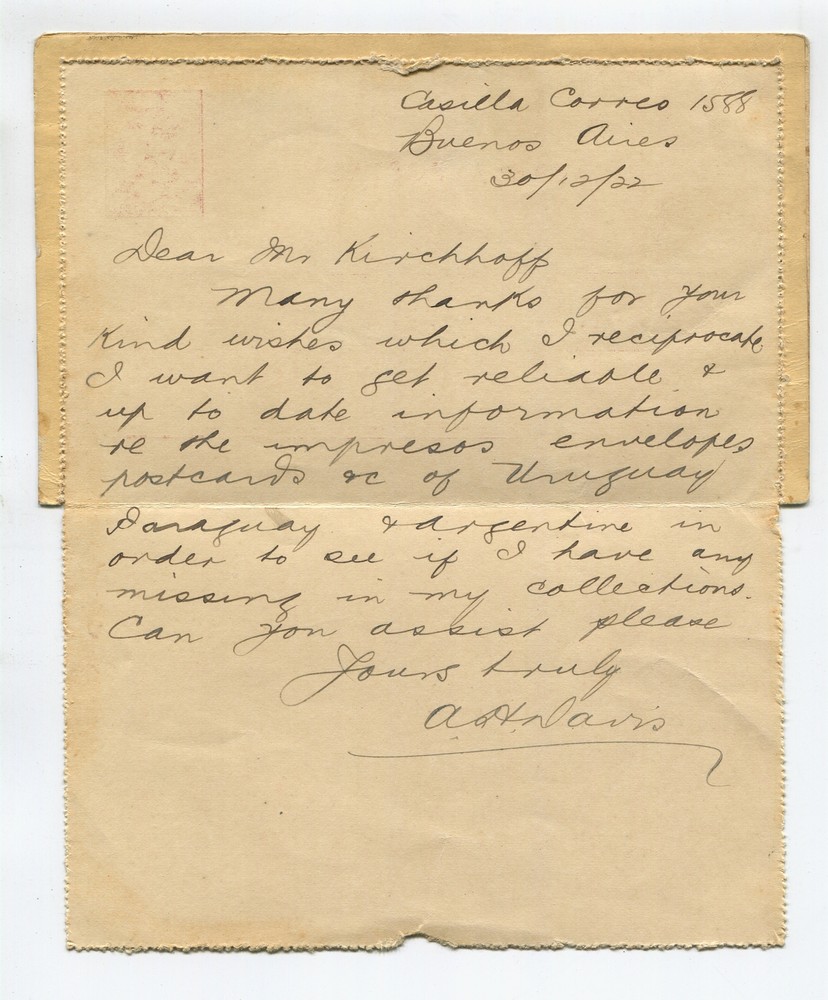 Casilla Correo 1588
Buenos Aires
30/12/22
Dear Mr Kirchhoff
Many thanks for your
kind wishes which I reciprocate
I want to get reliable &
up to date information
re the impresos envelopes
postcards &c of Uruguay
Paraguay & Argentine in
order to see if I have any
missing in my collections.
Can you assist please
Yours truly
A.H. Davis